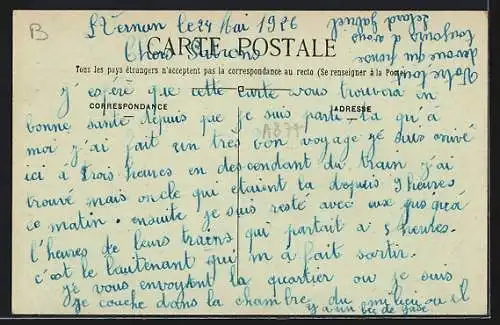 B
St Vernan le 24 Mai 1926
Chers Patrons
CARTE POSTALE
Tous les pays étrangers n'acceptent pas la correspondance au recto (Se renseigner à la Poste)
J'éspéré que cette Carte vous trouvera en
CORRESPONDANCE
ADRESSE
bonne santé depuis que je suis parti là qu'à
moi j'ai fait un très bon voyage jé suis arrivé
ici à trois heures en descendant du train j'ai
trouvé mais oncle qui étaient là depuis 9 heures
ce matin. ensuite je suis resté avec eux jusqu'à
l'heures de leurs trains qui partait à 5 heures.
c'est le lieutenant qui m'a fait sortir.
je vous envoyent la quartier ou je suis
je couche dans la chambre du milieu ou il
y a un bec de gase
Votre tout
dévoué qui pense
toujours à vous
Gabriel